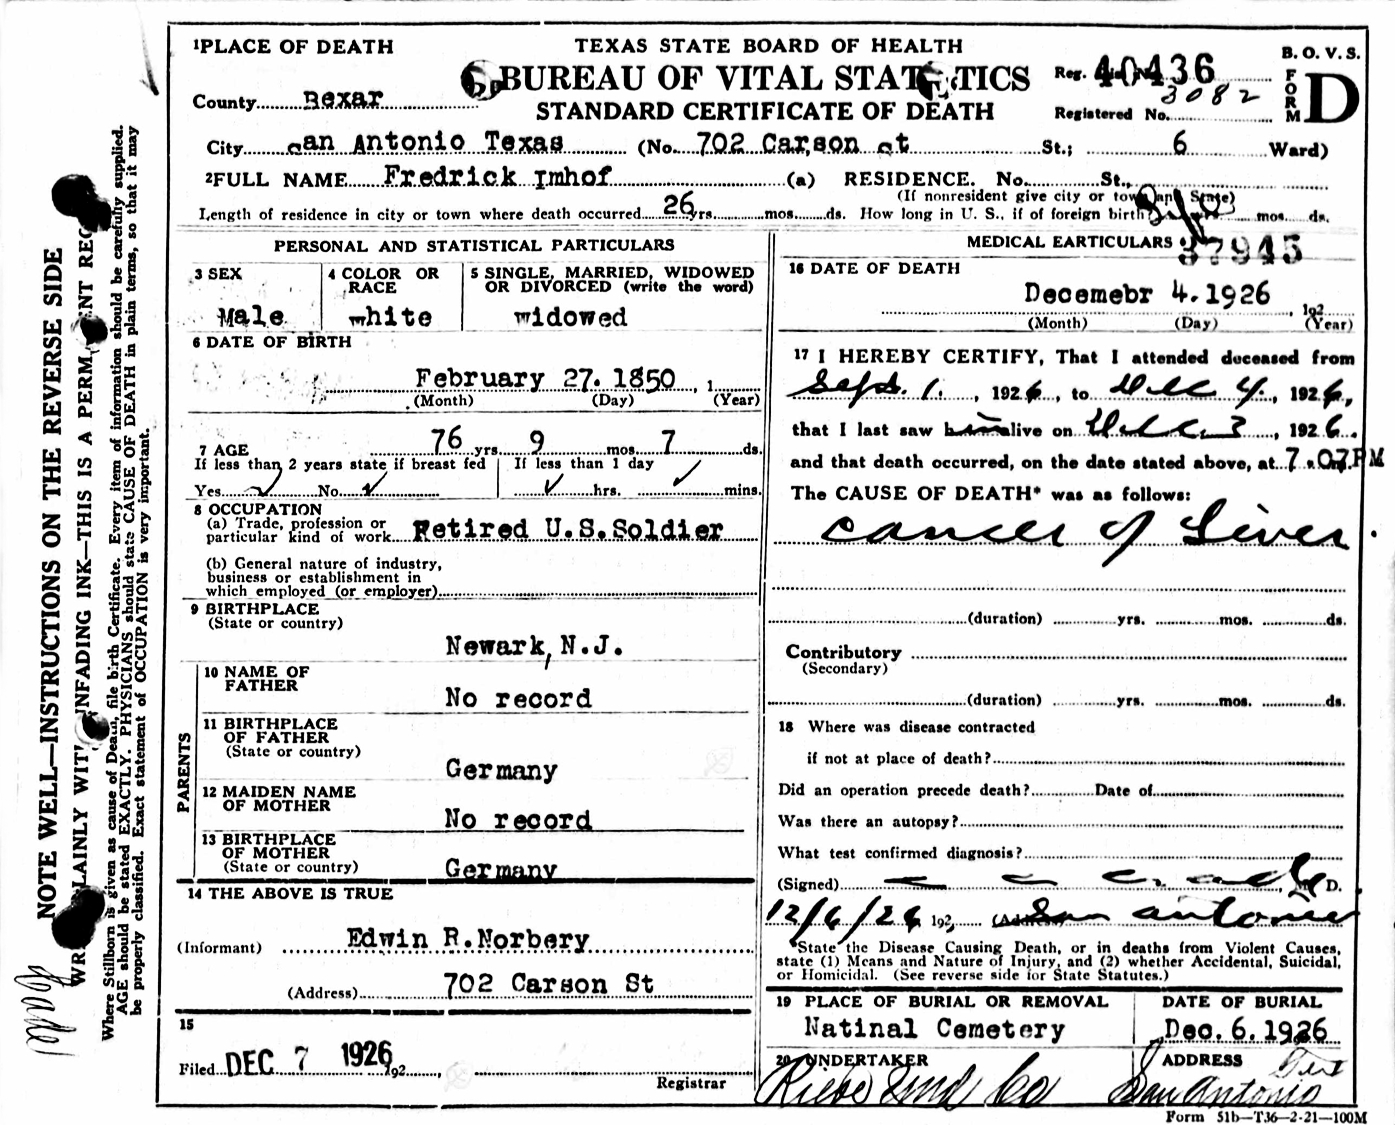 1 PLACE OF DEATH
TEXAS STATE BOARD OF HEALTH
B. O. V. S.
BUREAU OF VITAL STATISTICS
Reg. 40436
FORM D
County Bexar
STANDARD CERTIFICATE OF DEATH
Registered No. 3082
City San Antonio Texas (No. 702 Carson st St.; 6 Ward)
2 FULL NAME Fredrick Imhof (a) RESIDENCE. No. St.,
(If nonresident give city or town and State)
Length of residence in city or town where death occurred 26 yrs. mos. ds. How long in U. S., if of foreign birth? mos. ds.
PERSONAL AND STATISTICAL PARTICULARS
3 SEX
Male
4 COLOR OR RACE
white
5 SINGLE, MARRIED, WIDOWED OR DIVORCED (write the word)
widowed
6 DATE OF BIRTH
February 27. 1850, 1
(Month) (Day) (Year)
7 AGE 76 yrs. 9 mos. 7 ds.
If less than 2 years state if breast fed
If less than 1 day
Yes No
hrs. mins.
8 OCCUPATION
(a) Trade, profession or
particular kind of work Retired U.S.Soldier
(b) General nature of industry,
business or establishment in
which employed (or employer)
9 BIRTHPLACE
(State or country)
Newark, N.J.
PARENTS
10 NAME OF FATHER
No record
11 BIRTHPLACE OF FATHER
(State or country)
Germany
12 MAIDEN NAME OF MOTHER
No record
13 BIRTHPLACE OF MOTHER
(State or country)
Germany
14 THE ABOVE IS TRUE
(Informant) Edwin R.Norbery
(Address) 702 Carson St
15
Filed DEC 7 1926, 192
Registrar
MEDICAL PARTICULARS
37945
16 DATE OF DEATH
Decemebr 4.1926, 192
(Month) (Day) (Year)
17 I HEREBY CERTIFY, That I attended deceased from
Sept. 1., 1926, to Dec 4, 1926,
that I last saw him alive on Dec. 3, 1926.
and that death occurred, on the date stated above, at 7.07PM
The CAUSE OF DEATH* was as follows:
Cancer of Liver.
(duration) yrs. mos. ds.
Contributory
(Secondary)
(duration) yrs. mos. ds.
18 Where was disease contracted
if not at place of death?
Did an operation precede death? Date of
Was there an autopsy?
What test confirmed diagnosis?
(Signed) M. D.
12/6/26 192 (Address) San Antonio
*State the Disease Causing Death, or in deaths from Violent Causes,
state (1) Means and Nature of Injury, and (2) whether Accidental, Suicidal,
or Homicidal. (See reverse side for State Statutes.)
19 PLACE OF BURIAL OR REMOVAL
Natinal Cemetery
DATE OF BURIAL
Dec. 6.1926
20 UNDERTAKER
Riebe Und Co
ADDRESS
San Antonio Tex
Form 51b—T36—2-21—100M
NOTE WELL—INSTRUCTIONS ON THE REVERSE SIDE
WRITE PLAINLY WITH UNFADING INK—THIS IS A PERMANENT REC
Where Stillborn is given as cause of Death, file birth Certificate. Every item of information should be carefully supplied.
AGE should be stated EXACTLY. PHYSICIANS should state CAUSE OF DEATH in plain terms, so that it may
be properly classified. Exact statement of OCCUPATION is very important.